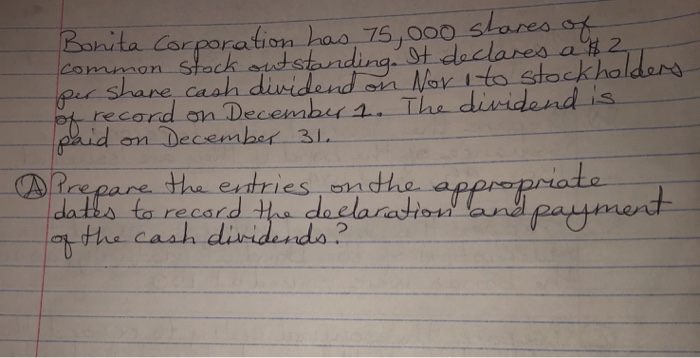 Bonita Corporation has 75,000 shares of
common stock outstanding. It declares a $2
per share cash dividend on Nov 1 to stockholders
of record on December 1. The dividend is
paid on December 31.
A Prepare the entries on the appropriate
dates to record the declaration and payment
of the cash dividends?